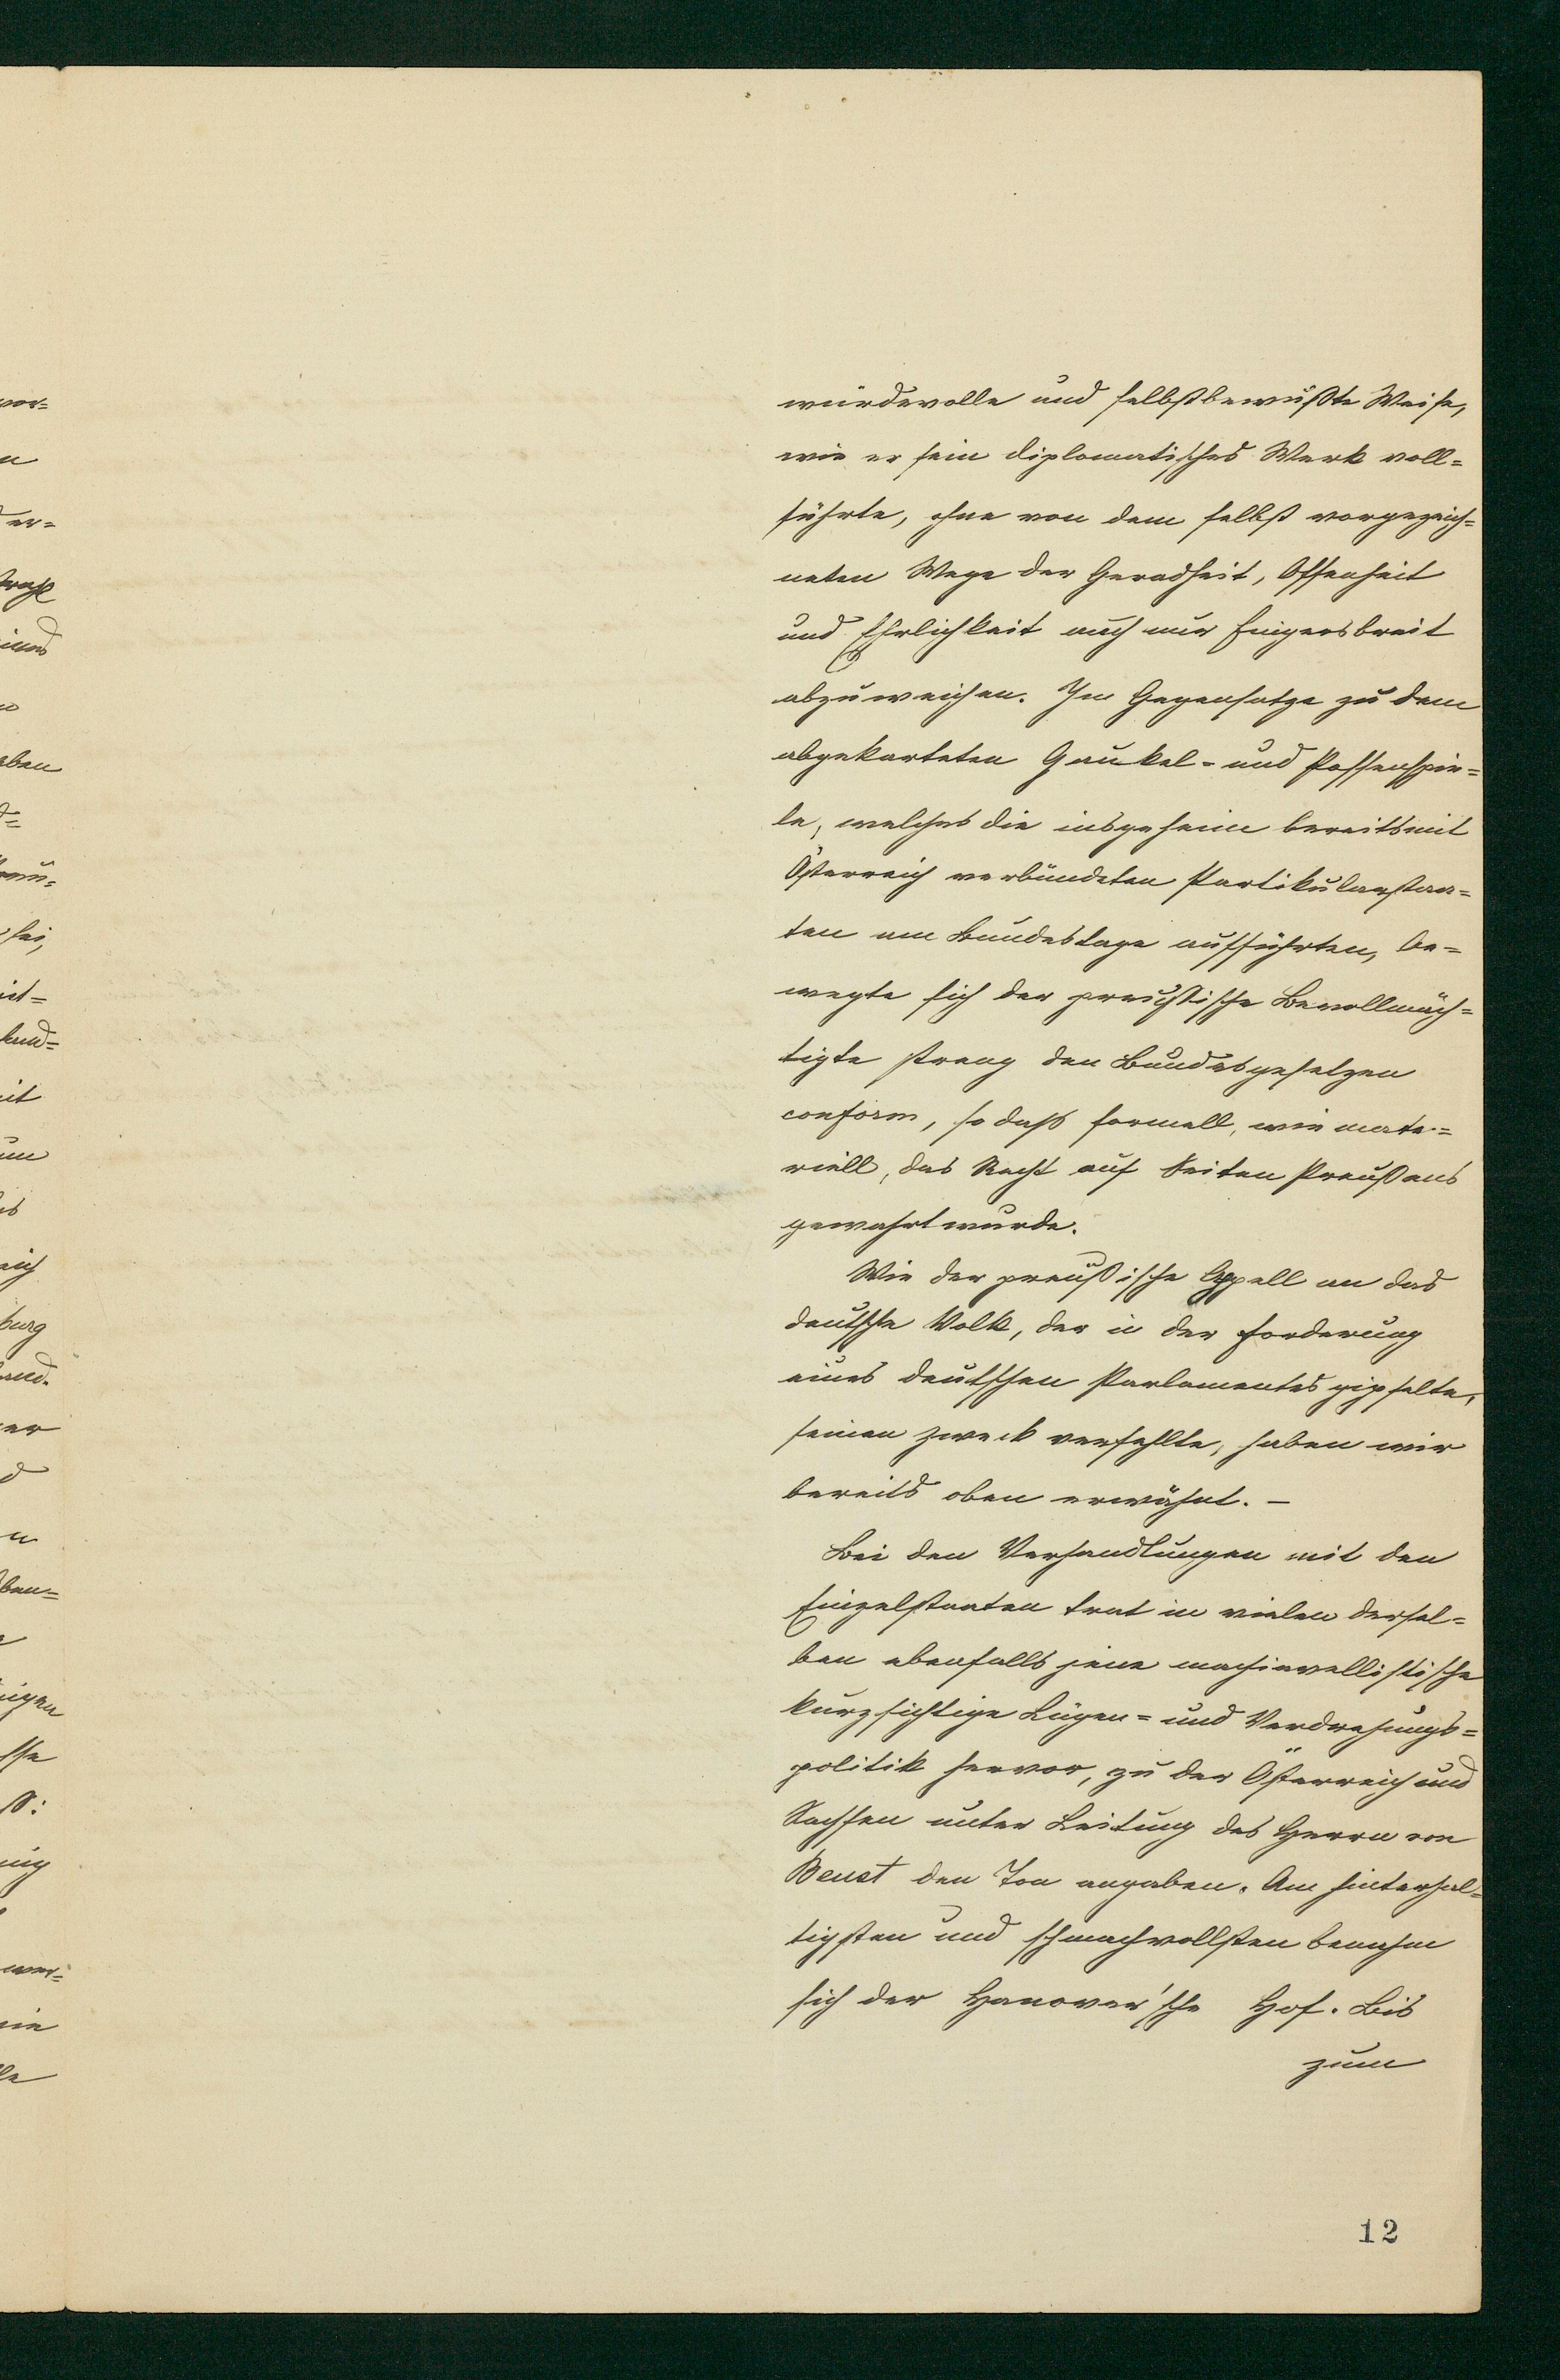 würdevolle und selbstbewußte Weise,
wie er sein diplomatisches Werk voll=
führte, ohne von dem selbst vorgezeich=
neten Wege der Geradheit, Offenheit
und Ehrlichkeit auch nur Fingersbreit
abzuweichen. Im Gegensatze zu dem
abgekarteten Gaukel= und Possenspie=
le, welches die insgeheim bereits mit
Österreich verbündeten Partikularstaa=
ten am Bundestage aufführten, be=
wegte sich der preußische Bevollmäch=
tigte streng den Bundesgesetzen
conform, so daß formell, wie mate=
riell, das Recht auf Seiten Preußens
gewahrt wurde.
Wie der preußische Appell an das
deutsche Volk, der in der Forderung
eines deutschen Parlamentes gipfelte,
seinen Zweck verfehlte, haben wir
bereits oben erwähnt. –
Bei den Verhandlungen mit den
Einzelstaaten trat in vielen dersel=
ben ebenfalls jene machiavellistische
kurzsichtige Lügen= und Verdrehungs=
politik hervor, zu der Österreich und
Sachsen unter Leitung des Herrn von
Beust den Ton angaben. Am hinterhal=
tigsten und schmachvollsten benahm
sich der Hanover'sche Hof. Bis
zum
12